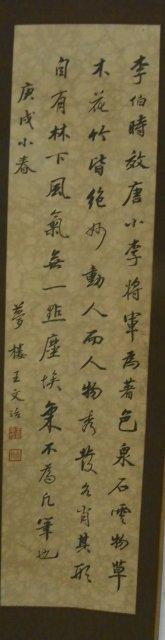 李伯時效唐小李將軍為著色泉石雲物草
木花竹皆絕妙動人而人物秀發各肖其形
自有林下風氣無一點塵埃氣不為凡筆也
庚戌小春
夢樓王文治